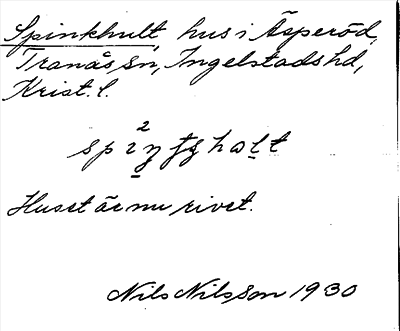 Spinkhult, hus i Äsperöd,
Tranås, sn, Ingelstads hd,
Krist. l.
Huset är nu rivet.
Nils Nilsson 1930